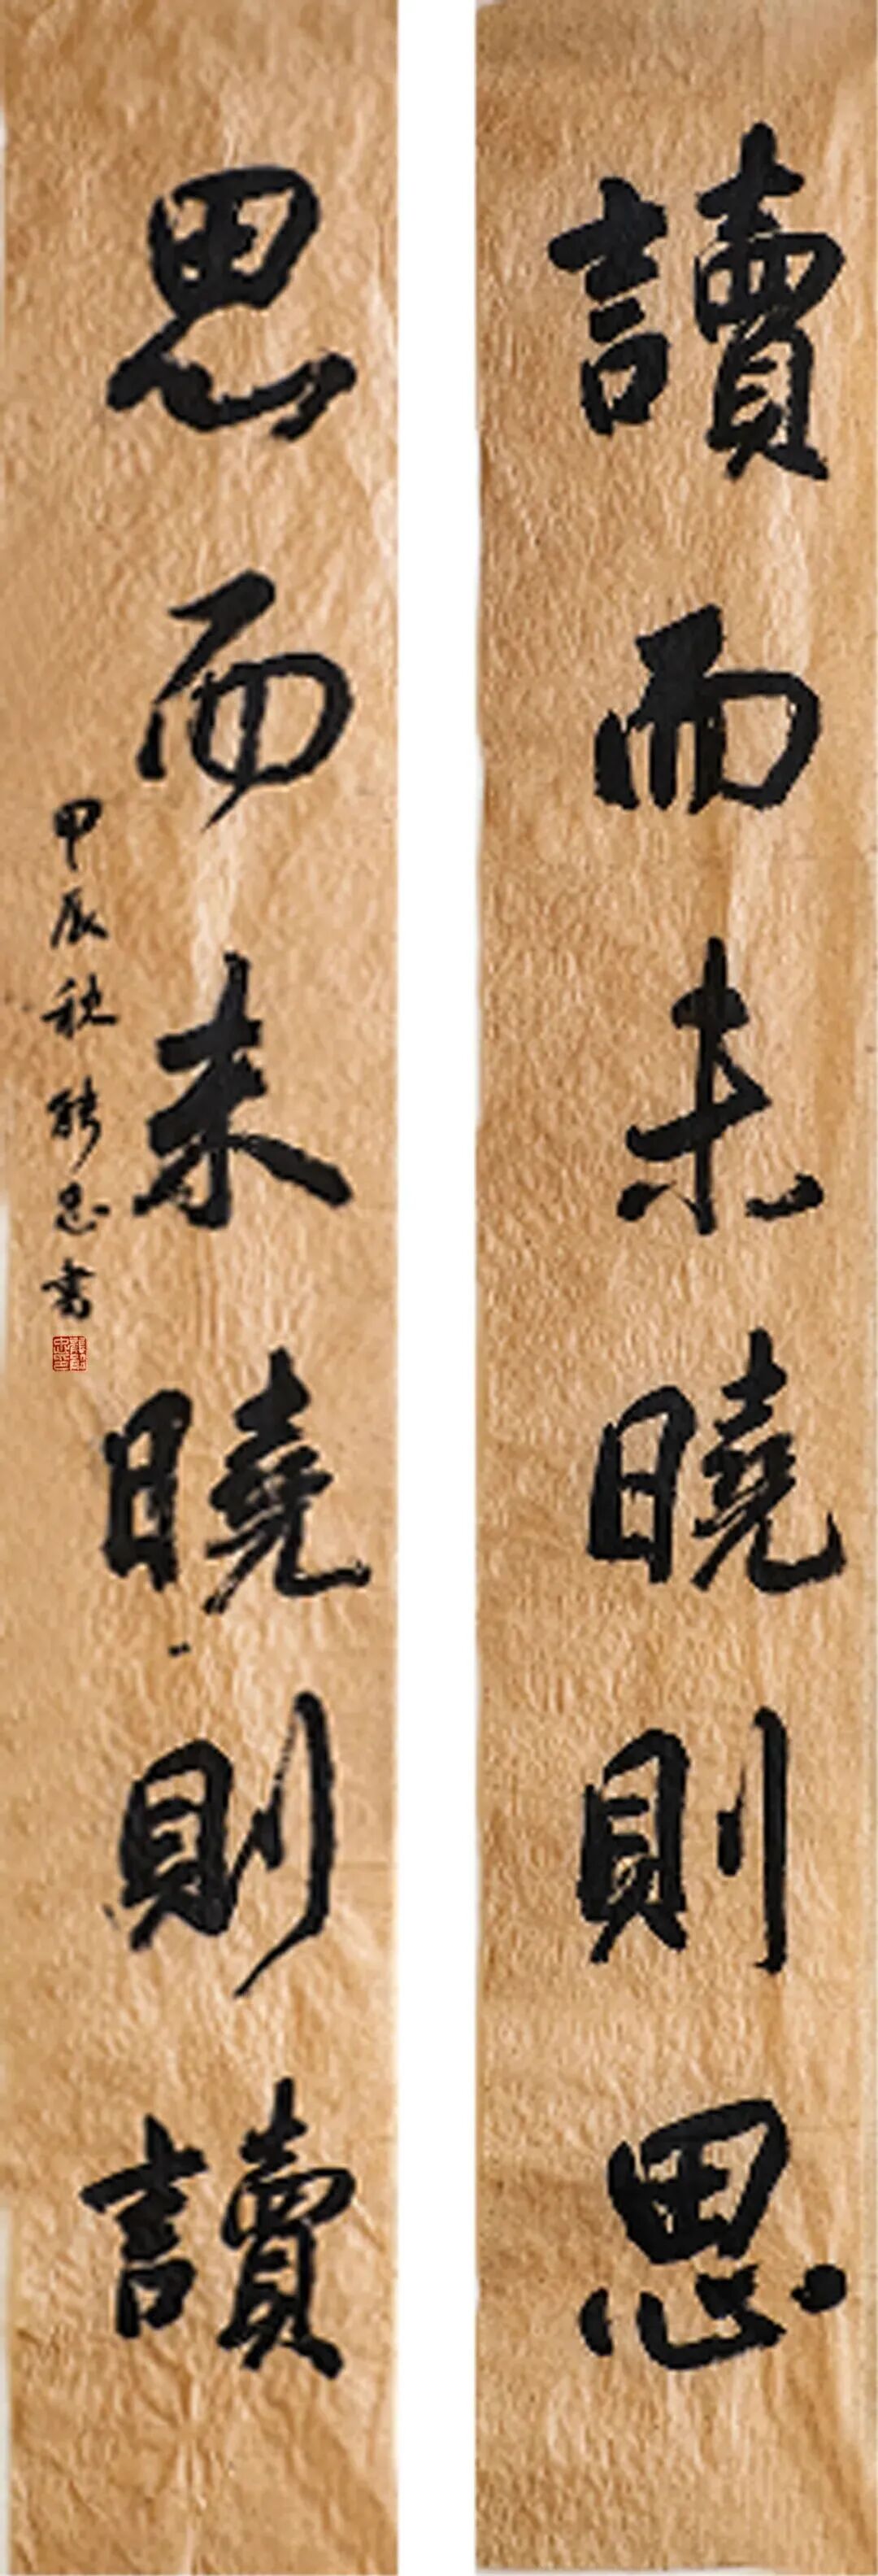 讀而未曉則思
思而未曉則讀
甲辰秋 忠書